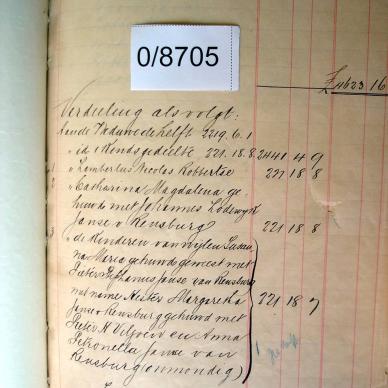 0/8705
Verdeeling als volgt:
aan de Weduwe de helft 2219.6.1
" id 1 Kindsgedeelte 221.18.8 2441 4 9
1 " Lambertus Nicolas Robbertse 221 18 8
2 " Catharina Magdalena ge
huwd met Johannes Lodewyk
Janse v Rensburg 221 18 8
3 " de Kinderen van wylen Susan
na Maria gehuwd geweest met
Pieter Stephanus Janse van Rensburg
met name Hester Margaretha
Janse v Rensburg gehuwd met 221 18 7
Pieter H Viljoen en Anna
Petronella Janse van
Rensburg (onmondig)